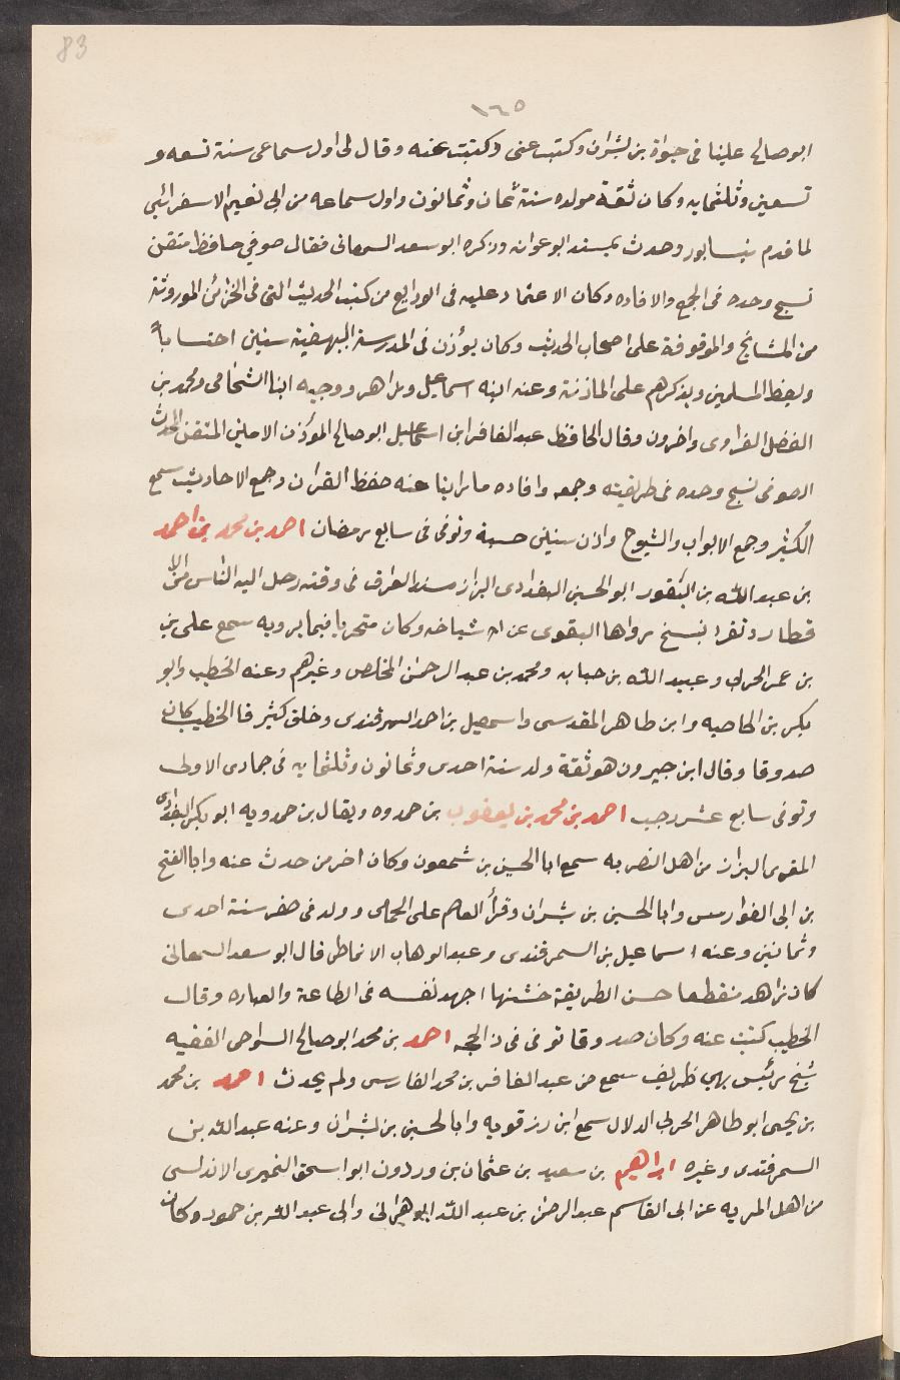 83
١٦٥
ابو صالح علينا فى حيواة بن بشران وكتبت عنى وكتبت عنه وقال لى اول سماعى سنة تسعه و
تسعين وثلثمايه وكان ثقة مولده سنة ثمان وثمانون واول سماعه من ابى نعيم الاسفرائنى
لما قدم نيسابور وحدث بمسند ابو عوانه وذكره ابو سعد السمعانى فقال صوفي حافظ متقن
نسيج وحده فى الجمع والافاده وكان الاعتماد عليه فى الودايع من كتب الحديث التى فى الخزائن الموروثة
من المشايخ والموقوفة على اصحاب الحديث وكان يوذن فى المدرسة البيهقية سنين احتساباً
ويعظ المسلمين ويذكرهم على الماذنة وعنه ابنه اسماعيل وزاهر ووجيه ابنا الشحامى ومحمد بن
الفضل الفراوى واخرون وقال الحافظ عبد الغافر ابن اسماعيل ابو صالح المؤذن الامين المتقن المحدث
الصوفى نسيج وحده فى طريقته وجمعه وافاده ما راينا عنه حفظ القران وجمع الاحاديث سمع
الكثير وجمع الابواب والشيوخ واذن سنين حسبة وتوفى فى سابع رمضان احمد بن محمد بن احمد
بن عبد الله بن النقور ابو الحسين البغدادى البزاز مسند العراق فى وقته رحل اليه الناس من الا
قطار وتفرد بنسخ رواها البغوى عن اشياخه وكان متحريا فيما يرويه سمع على بن
بن عمر الحربى وعبيد الله بن حبابه ومحمد بن عبد الرحمن المخلص وغيرهم وعنه الخطيب وابو
بكر بن الخاصبه وابن طاهر المقدسى واسمعيل بن احمد السمرقندى وخلق كثير قا الخطيب كان
صدوقا وقال ابن خيرون هو ثقة ولد سنة احدى وثمانون وثلثمايه فى جمادى الاولى
وتوفى سابع عشر رجب احمد بن محمد بن يعقوب بن حمدوه ويقال بن حمدويه ابو بكر البغدادى
المقرى البزاز من اهل النصريه سمع ابا الحسين بن شمعون وكان اخر من حدث عنه وابا الفتح
بن ابى الفوارس وابا الحسين بن بشران وقرأ العاصم على الحمامى وولد فى صفر سنة احدى
وثمانين وعنه اسماعيل بن السمرقندى وعبد الوهاب الانماطى قال ابو سعد السمعانى
كان زاهد منقطعا حسن الطريقة خشنها اجهد نفسه فى الطاعة والعباده وقال
الخطيب كتبت عنه وكان صدوقا توفى فى ذى الحجه احمد بن محمد ابو صالح السواحى الفقيه
شيخ رئيس بهى ظريف سمع من عبد الغافر بن محمد الفارسى ولم يحدث احمد بن محمد
بن يحيى ابو طاهر الحربى الدلال سمع ابن رزقويه وابا الحسين بن بشران وعنه عبد الله بن
السمرقندى وغيره ابراهيم بن سعيد بن عثمان بن وردون ابو اسحق النميرى الاندلسى
من اهل المريه عن ابى القاسم عبد الرحمن بن عبد الله الوهرانى وابى عبد الله بن حمود وكان